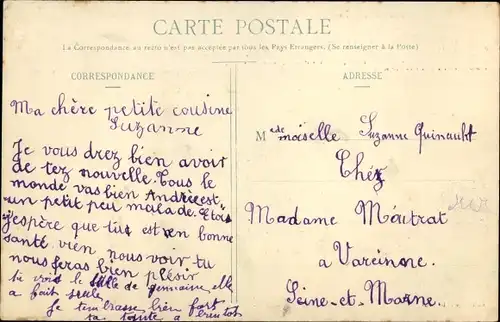 CARTE POSTALE
La Correspondance au recto n'est pas acceptée par tous les Pays Etrangers. (Se renseigner à la Poste)
CORRESPONDANCE
ADRESSE
Ma chère petite cousine
Suzanne
Je vous drez bien avoir
de tez nouvelle. Tous le
monde vas bien Andrée est
un petit peu malade. Et toi
j'espère que tu est en bonne
santé vien nous voir tu
nous feras bien plésir
tu vois le de germaine elle
a fait seule
Je tembrasse bien fort
ta a bientot
Mademoiselle Suzanne Quinault
Chéz
Madame Méutrat
a Vareinne.
Seine-et-Marne.